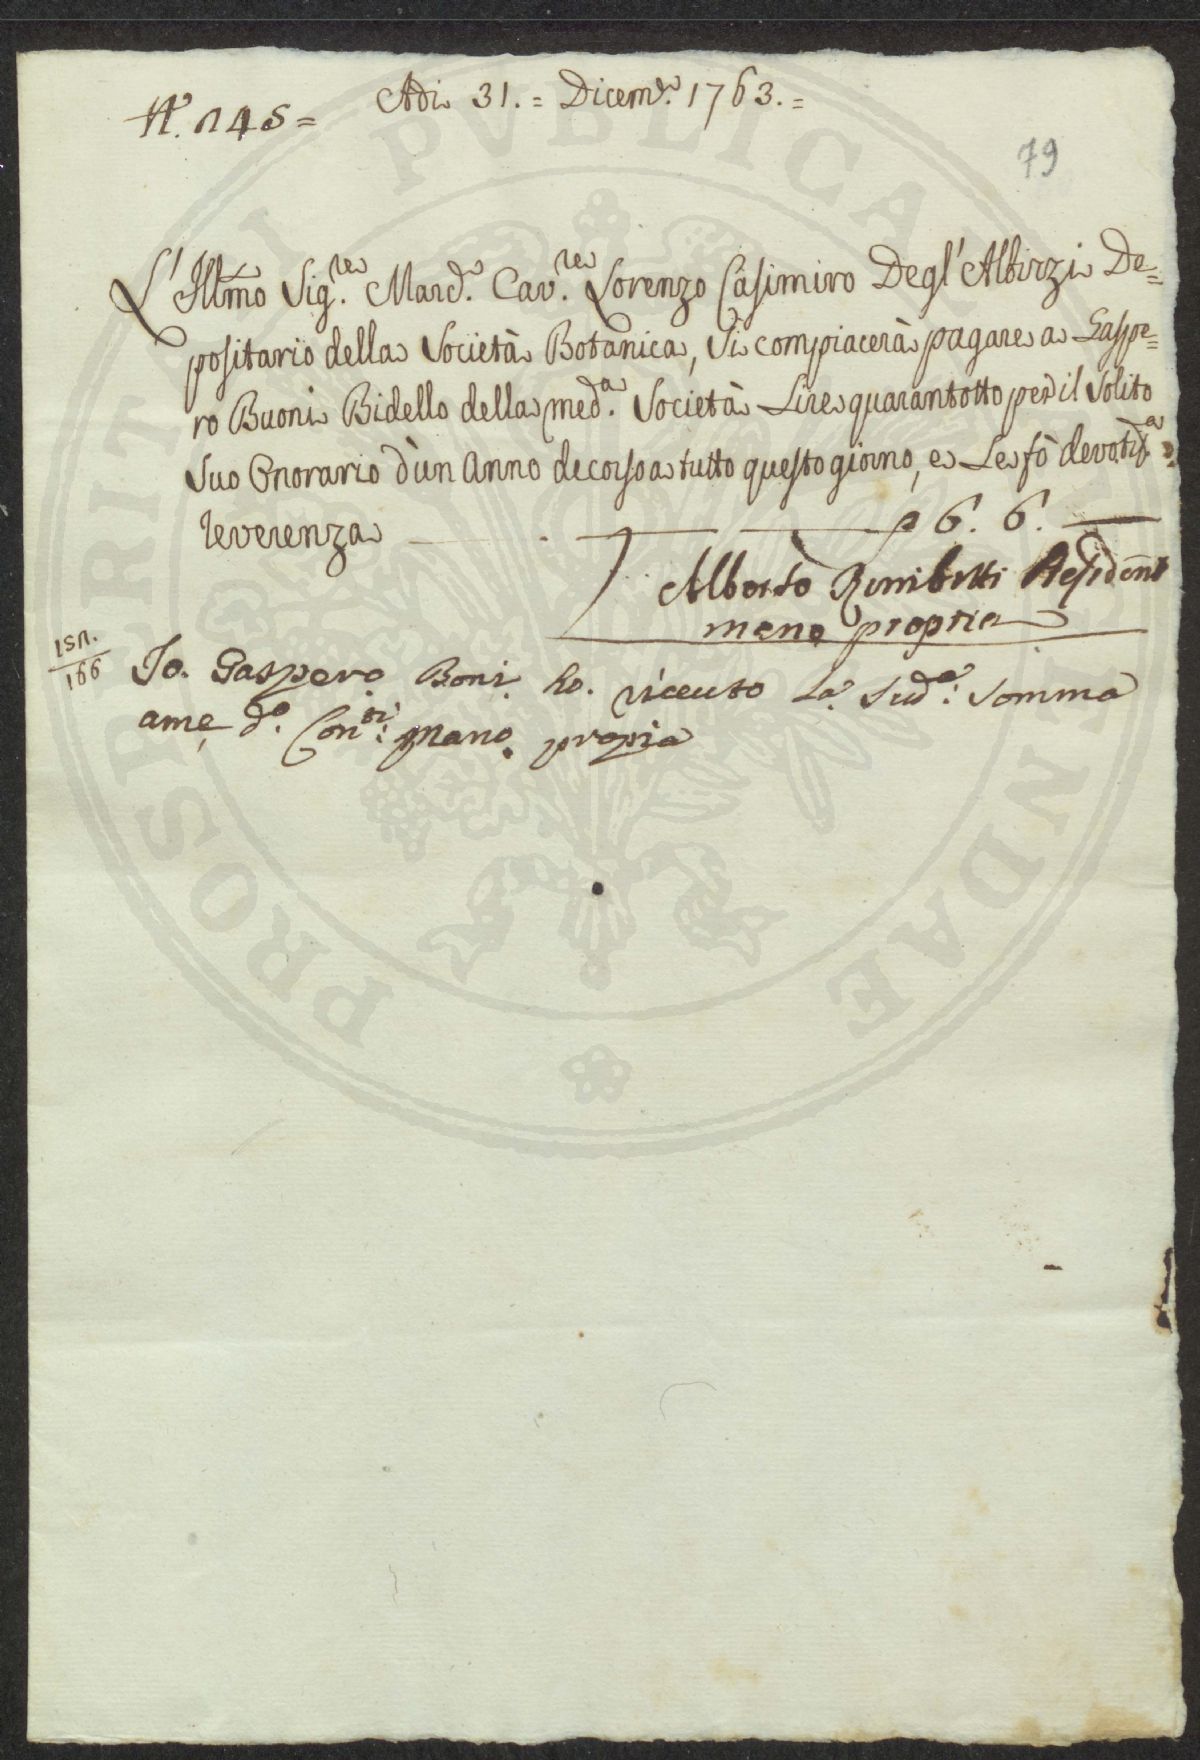 Adi 31. = Dicem.e 1763. =
N.o 145 =
79
L' Ill.mo Sig.re March.e Cav.re Lorenzo Casimiro Degl' Albizzi De=
positario della Società Botanica, Si compiacerà pagare a Gaspe=
ro Buoni Bidello della med.a Società Lire quarantotto per il Solito
Suo Onorario d'un Anno decorso a tutto questo giorno, e Le fò devotis.a
reverenza
6. 6.
Alberto Rimbotti
mano propria
151.
166
Io. Gaspero Boni ho. riceuto La Sud.a: Somma
a me d.o Con.ti: Mano propia
PROSPERITATI PVBLICAE AVGENDAE